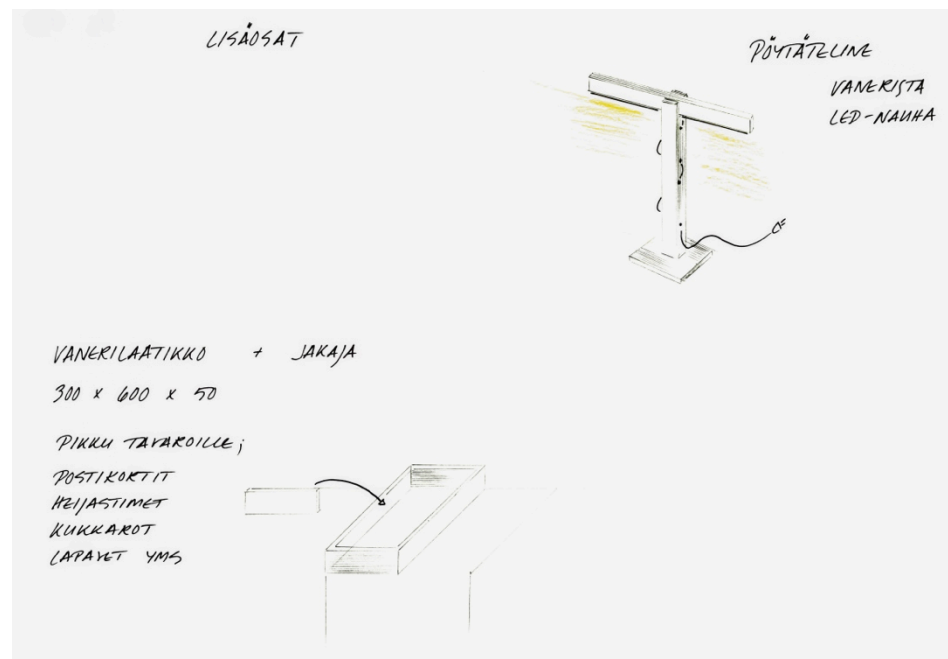 LISÄOSAT
PÖYTÄTELINE
VANERISTA
LED-NAUHA
VANERILAATIKKO + JAKAJA
300 x 600 x 50
PIKKU TAVAROILLE;
POSTIKORTIT
HEIJASTIMET
KUKKAROT
LAPASET YMS